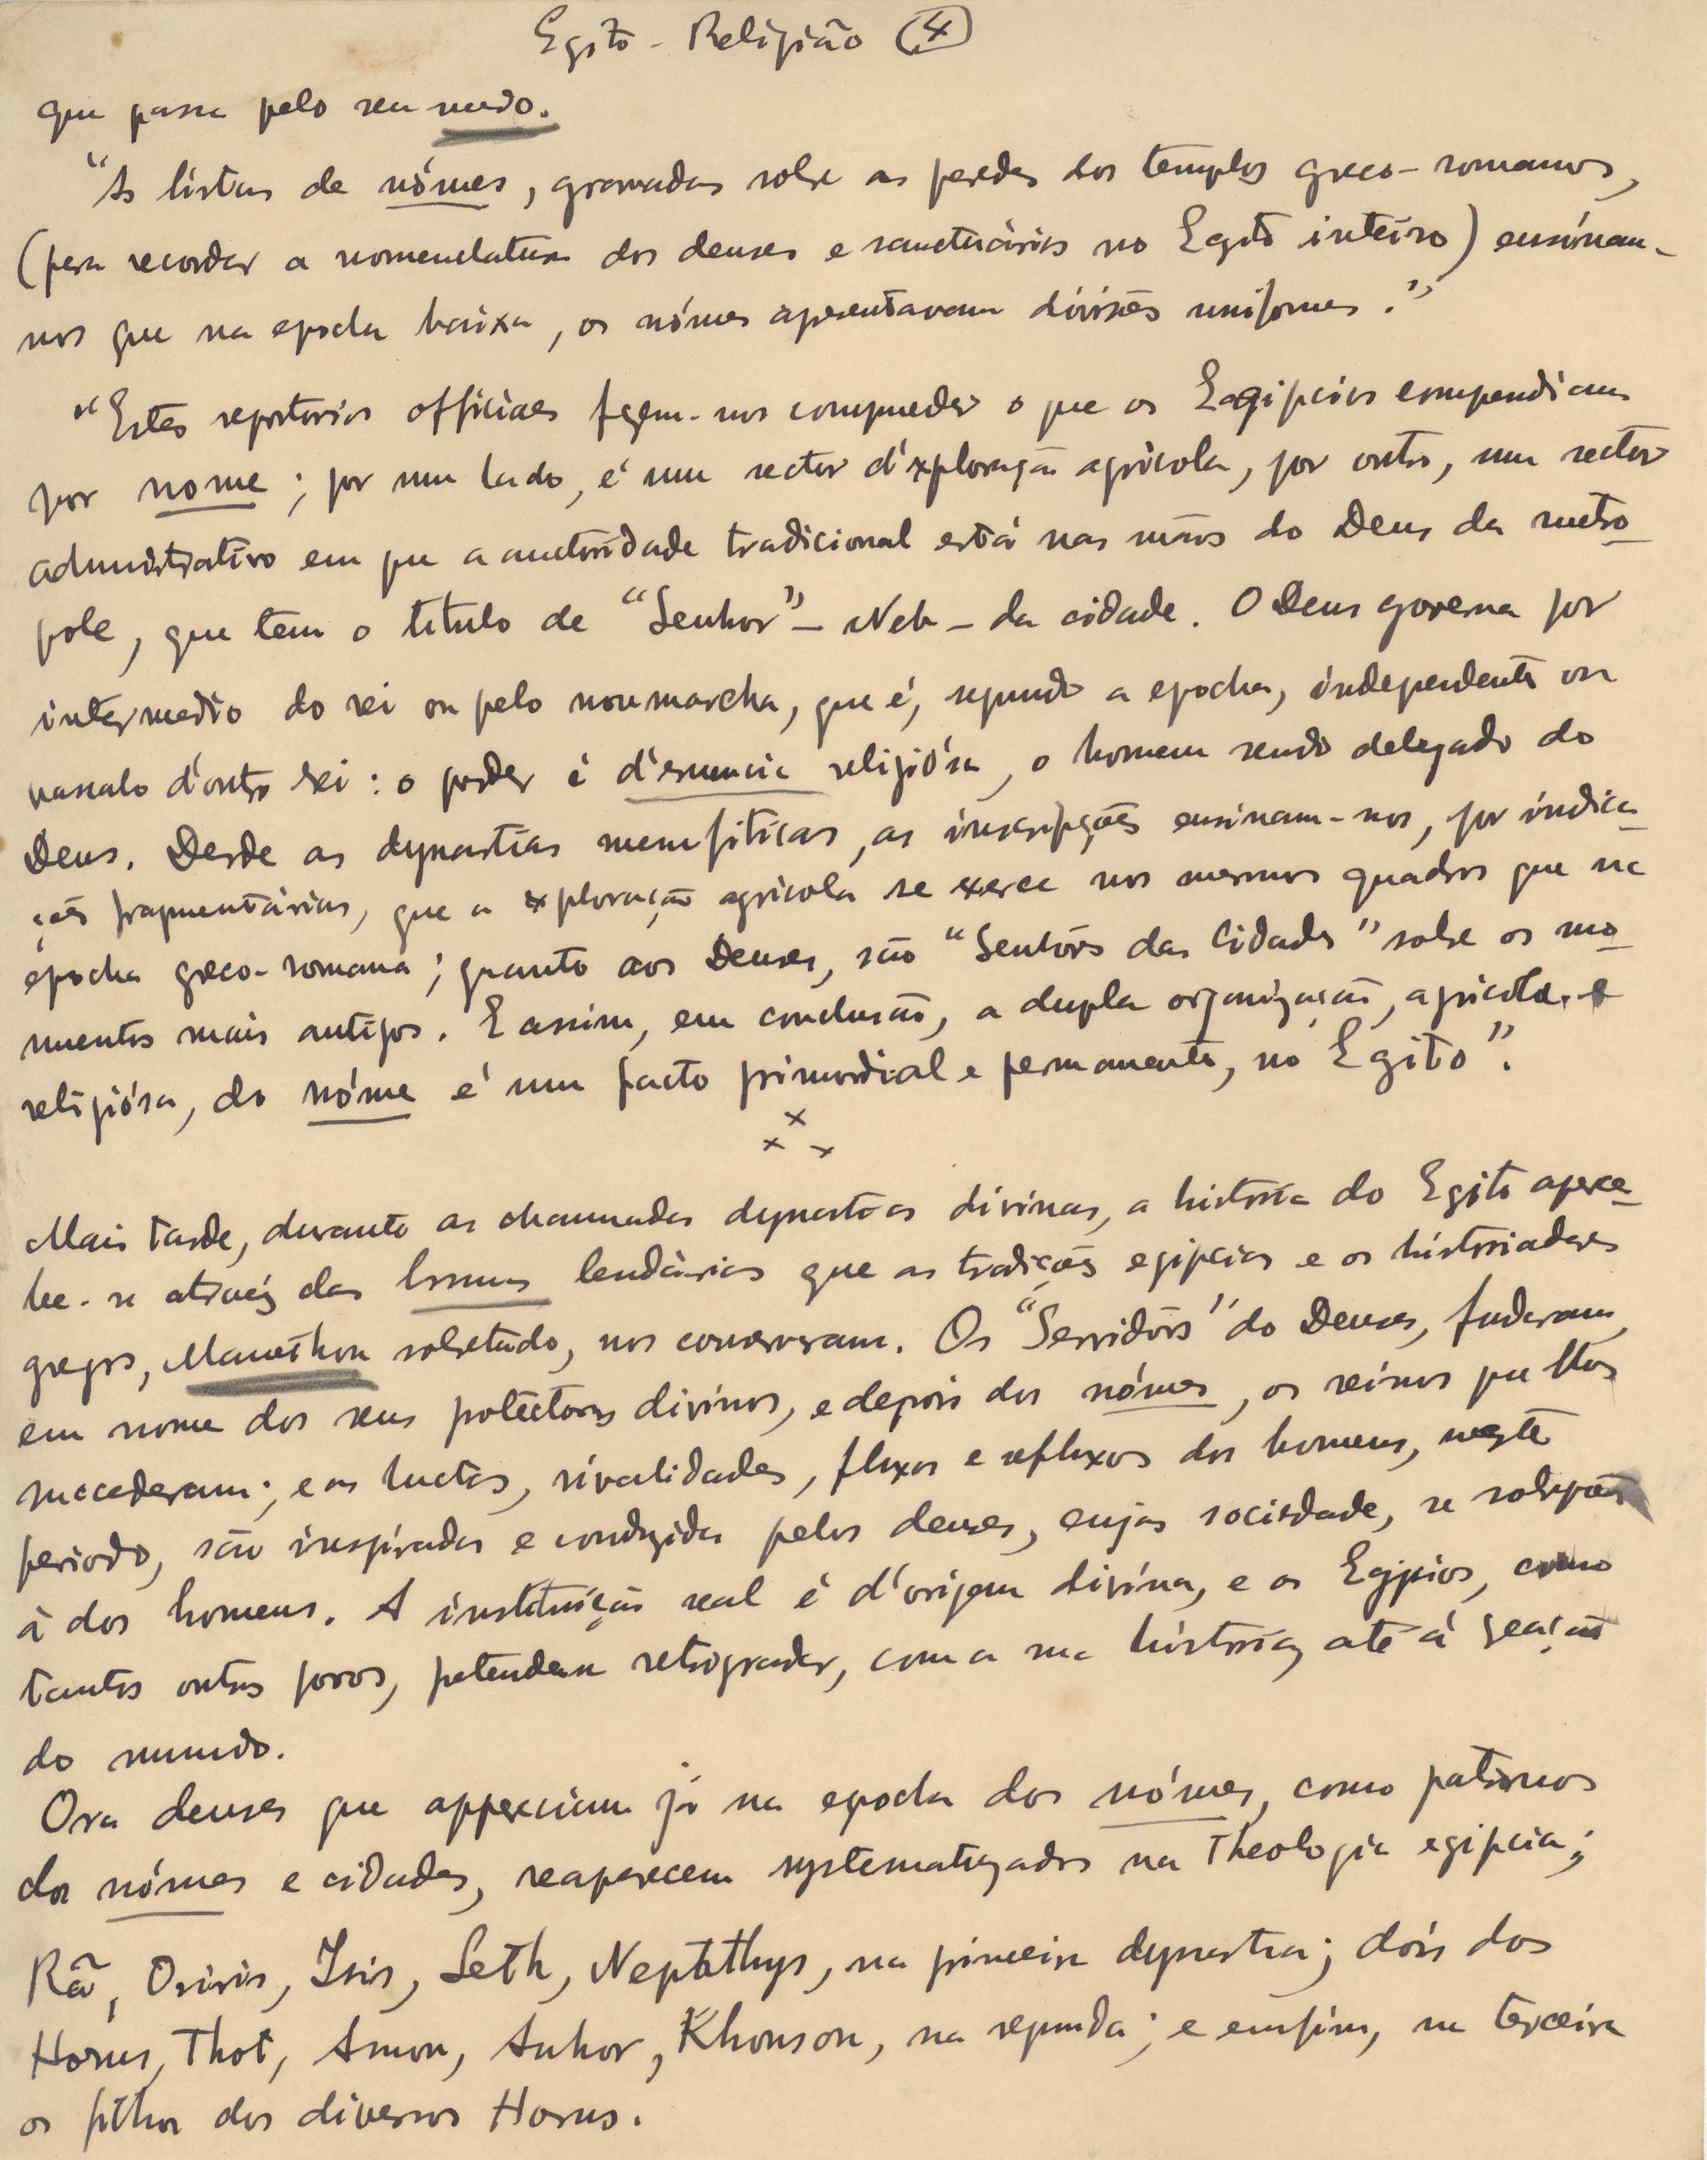 Egito - Religião (4)
que passa pelo seu medo.
"As listas de nómes, gravadas sobre as paredes dos templos greco-romanos,
(para recordar a nomenclatura dos deuses e sanctuários no Egito inteiro) ensinam-
nos que na epocha baixa, os nómes apresentavam divisões uniformes."
"Estes reportorios officiaes fazem-nos comprehender o que os Egipcios comprendiam
por nome; por um lado, é um sector d'exploração agricola, por outro, um sector
administrativo em que a auctoridade tradicional está nas mãos do Deus da metro
pole, que tem o titulo de "Senhor" - Neb - da cidade. O Deus governa por
intermedio do rei ou pelo noumarcha, que é, segundo a epocha, independente ou
vassalo d'outro rei: o poder é d'essencia religiósa, o homem sendo delegado do
Deus. Desde as dynastias memfiticas, as inscripções ensinam-nos, por indica
ções fragmentárias, que a exploração agricola se exerce nos mesmos quadros que na
epocha greco-romana; quanto aos Deuses, são "Senhôres das Cidades" sobre os mo
numentos mais antigos. E assim, em conclusão, a dupla organização, agricola e
religiósa, do nóme é um facto primordial e permanente, no Egito".
x x x
Mais tarde, durante as chamadas dynastias divinas, a história do Egito aperce
be-se através das brumas lendárias que as tradições egipcias e os historiadores
gregos, Manethon sobretudo, nos conservaram. Os "Servidôres" do Deuses, fundaram,
em nome dos seus protectores divinos, e depois dos nómes, os reinos que lhes
succederam; e as luctas, rivalidades, fluxos e refluxos dos homens, neste
periodo, são inspirados e conduzidos pelos deuses, cujas sociedade, se sobrepõe
à dos homens. A instituição real é d'origem divina, e os Egipcios, como
tantos outros povos, pretendem retrogradar, com a sua história, até á creação
do mundo.
Ora deuses que appareciam já na epocha dos nómes, como patronos
dos nómes e cidades, reaparecem systematizados na Theologia egipcia;
Rã, Osiris, Isis, Seth, Nephthys, na primeira dynastia; dois dos
Horus, Thot, Amon, Anhor, Khonson, na segunda; e emfim, na terceira
os filhos dos diversos Horus.